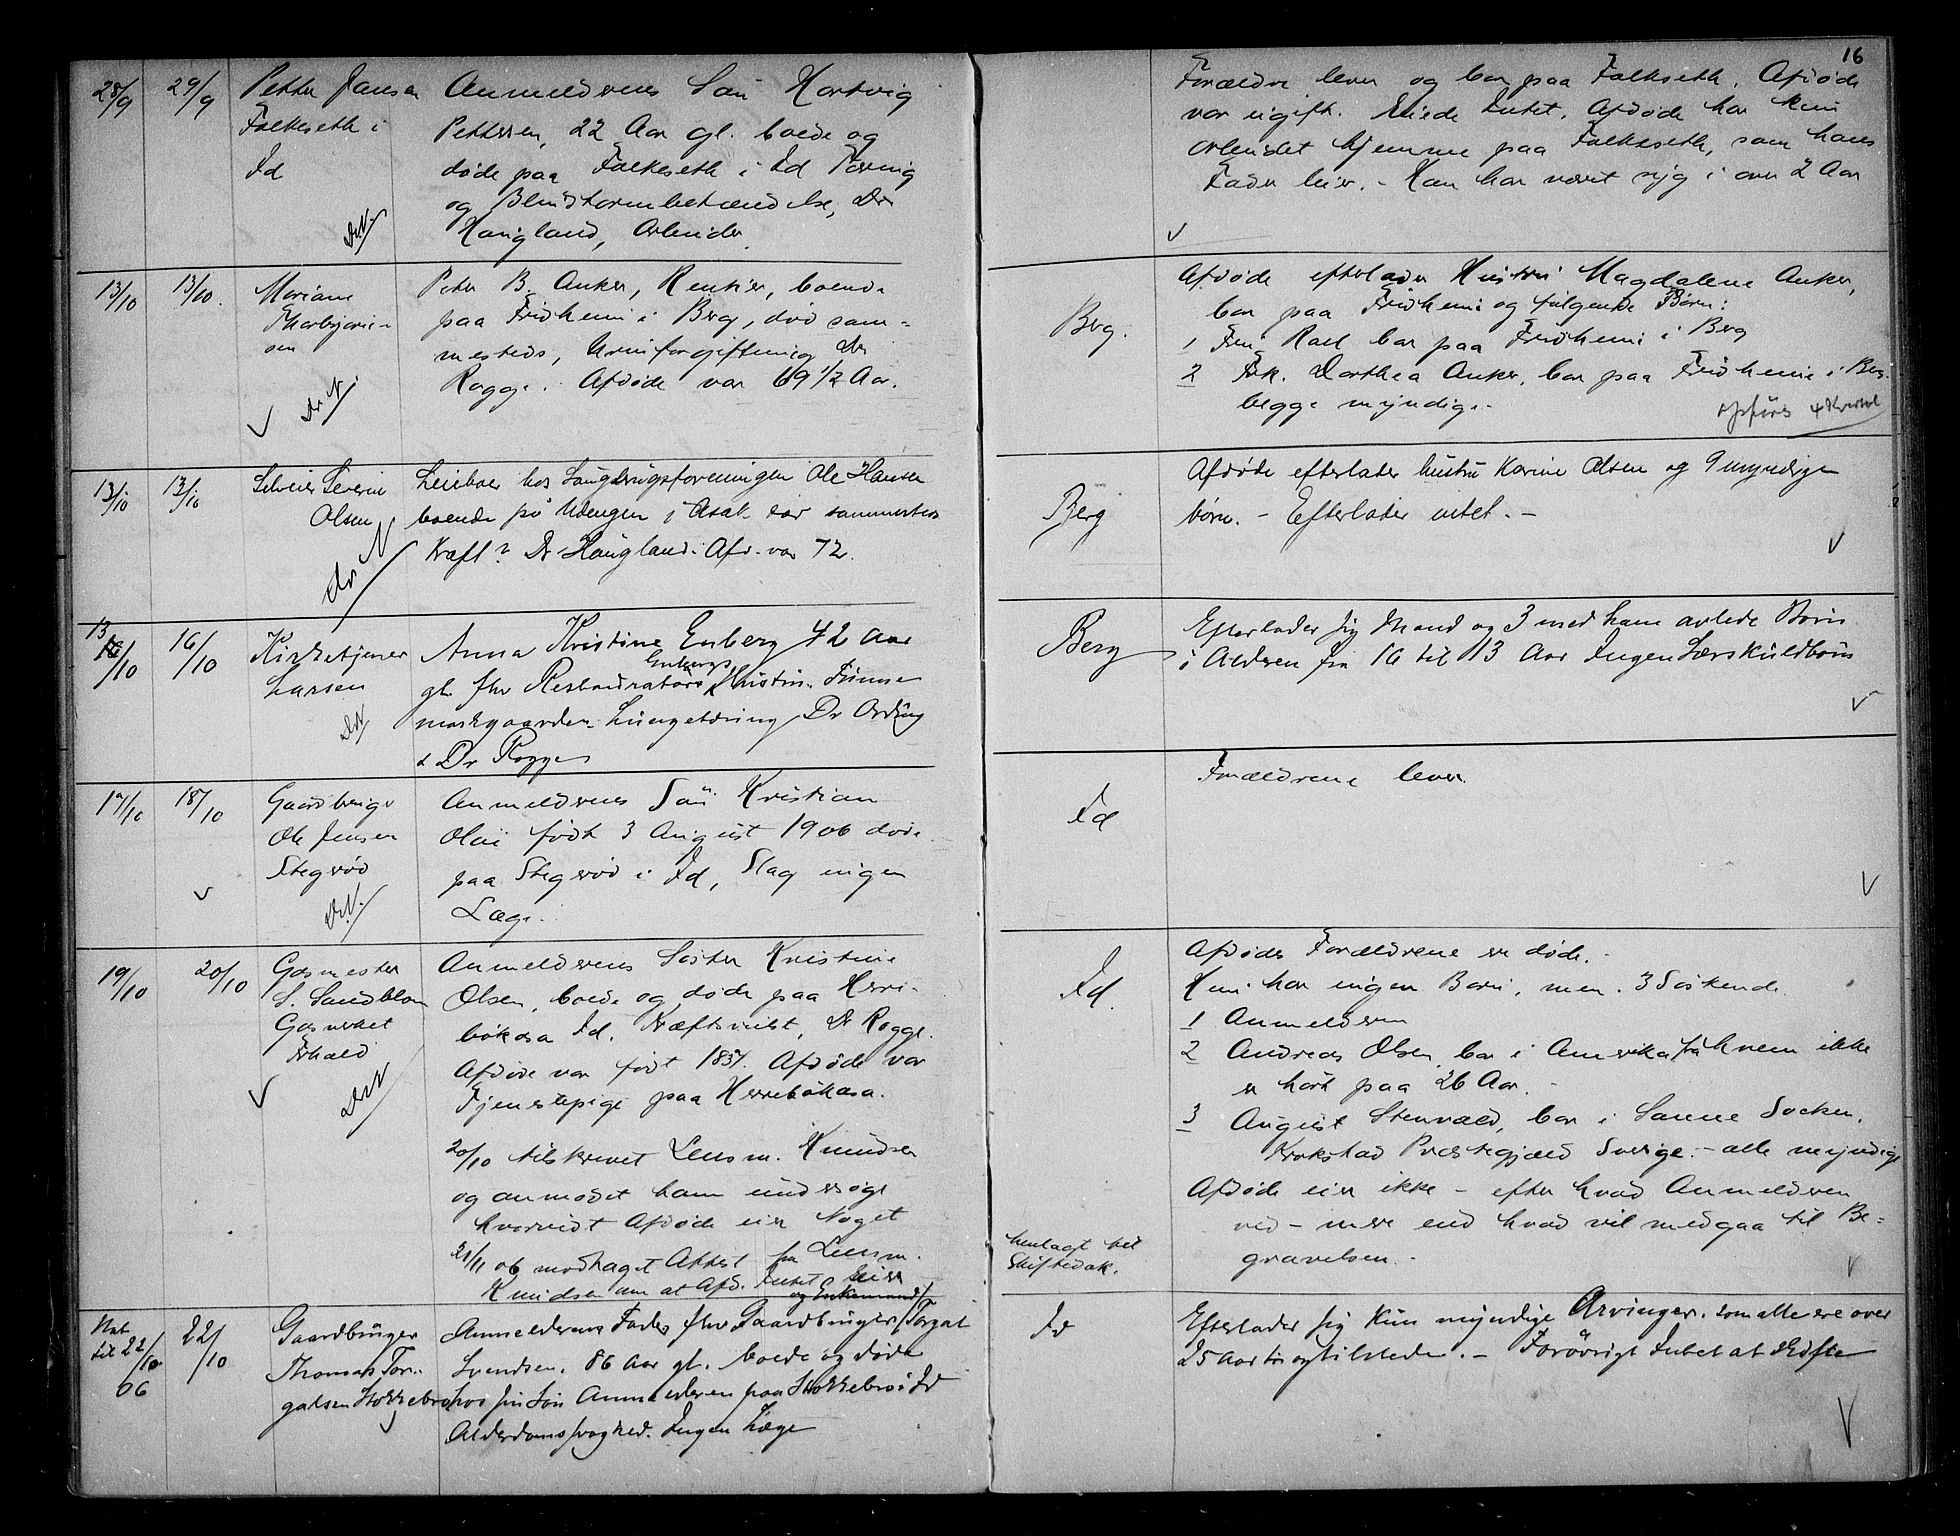 16
28/9 29/9 Petter Jansen
Falkeseth i
Id
Anmelderens Søn Hartvig
Pettersen, 22 Aar gl. boede og
døde paa Falkeseth i Id Tæring
og Blindtarmbetændelse, Dr
Haugland, Arbeider
Forældre lever og bor paa Falkeseth. Afdøde
var ugift. Eiede Intet. Afdøde har kun
arbeidet hjemme paa Falkeseth, som hans
Fader eier. - Han har været syg i over 2 Aar
13/10 13/10. Mariane
Thorbjørn-
sen
Peter B. Anker, Rentier, boende
paa Fridheim i Berg, død sam-
mesteds, Urinforgiftning Dr
Rogge. Afdøde var 69 1/2 Aar.
Berg.
Afdøde efterlader Hustru Magdalene Anker,
bor paa Fridheim og følgende Børn:
1 Fru Roll bor paa Fridheim i Berg
2 Frk. Dorthea Anker, bor paa Fridheim i Berg.
begge myndige.
opføres 4 Kvartal
13/10 13/10 Severin
Olsen
Leieboer hos Langbrugsforeningen Ole Hansen
boende på Udengen i Asak død sammesteds
Kræft? Dr Haugland. Afd. var 72.
Berg
Afdøde efterlader hustru Karine Olsen og 9 myndige
børn. - Efterlader intet. -
13/10 16/10 Kirketjener
Larsen
Anna Kristine Enberg 42 Aar
gl. fhv Restauratørs Enbergs Hustru. Finne
markgaarden Lungetæring Dr Ording
& Dr Rogge
Berg
Efterlader sig Mand og 3 med ham avlede Børn
i Alderen fra 16 til 13 Aar Ingen Særskuldbørn
17/10 18/10 Gaardbruger
Ole Jensen
Stegrød
Anmelderens Søn Kristian
Olai født 3 August 1906 døde
paa Stegrød i Id, Slag ingen
Læge.
Id
Forældrene lever
19/10 20/10 Gasmester
S. Sandblom
Gasverket
Frhald
Anmelderens Søster Kristine
Olsen, boede og døde paa Herre-
bøkasa Id. Kræftsvulst, Dr Rogge.
Afdøde var født 1837. Afdøde var
Tjenestepige paa Herrebøkasa.
20/10 tilskrevet Lensm. Knudsen
og anmodet ham undersøge
hvorvidt Afdøde eier Noget
21/11 06 modtaget Attest fra Lensm.
Knudsen om at Afd. Intet eier
Id.
henlagt til
Skiftedok.
Afdødes Forældrene er døde.
Hun har ingen Børn, men 3 Søskende
1 Anmelderen
2 Andreas Olsen bor i Amerika fra hvem ikke
er hørt paa 26 Aar.
3 August Stenvald, bor i Sanne Socken,
Krokstad Præstegjæld Sverige. - alle myndige
Afdøde eier ikke - efter hvad Anmelderen
ved - mere end hvad vil medgaa til Be-
gravelsen.
Nat
til 22/10
06
22/10 Gaardbruger
Thomas Tor-
galsen Stokkebro
og Enkemand
Anmelderens Fader fhv Gaardbruger Torgal
Svendsen. 86 Aar gl. boede og døde
hos sin Søn Anmelderen paa Stokkebro i Id
Alderdomssvaghed. Ingen Læge
Id
Efterlader sig kun myndige Arvinger. som alle ere over
25 Aar og tilstede. - Forøvrigt Intet at skifte